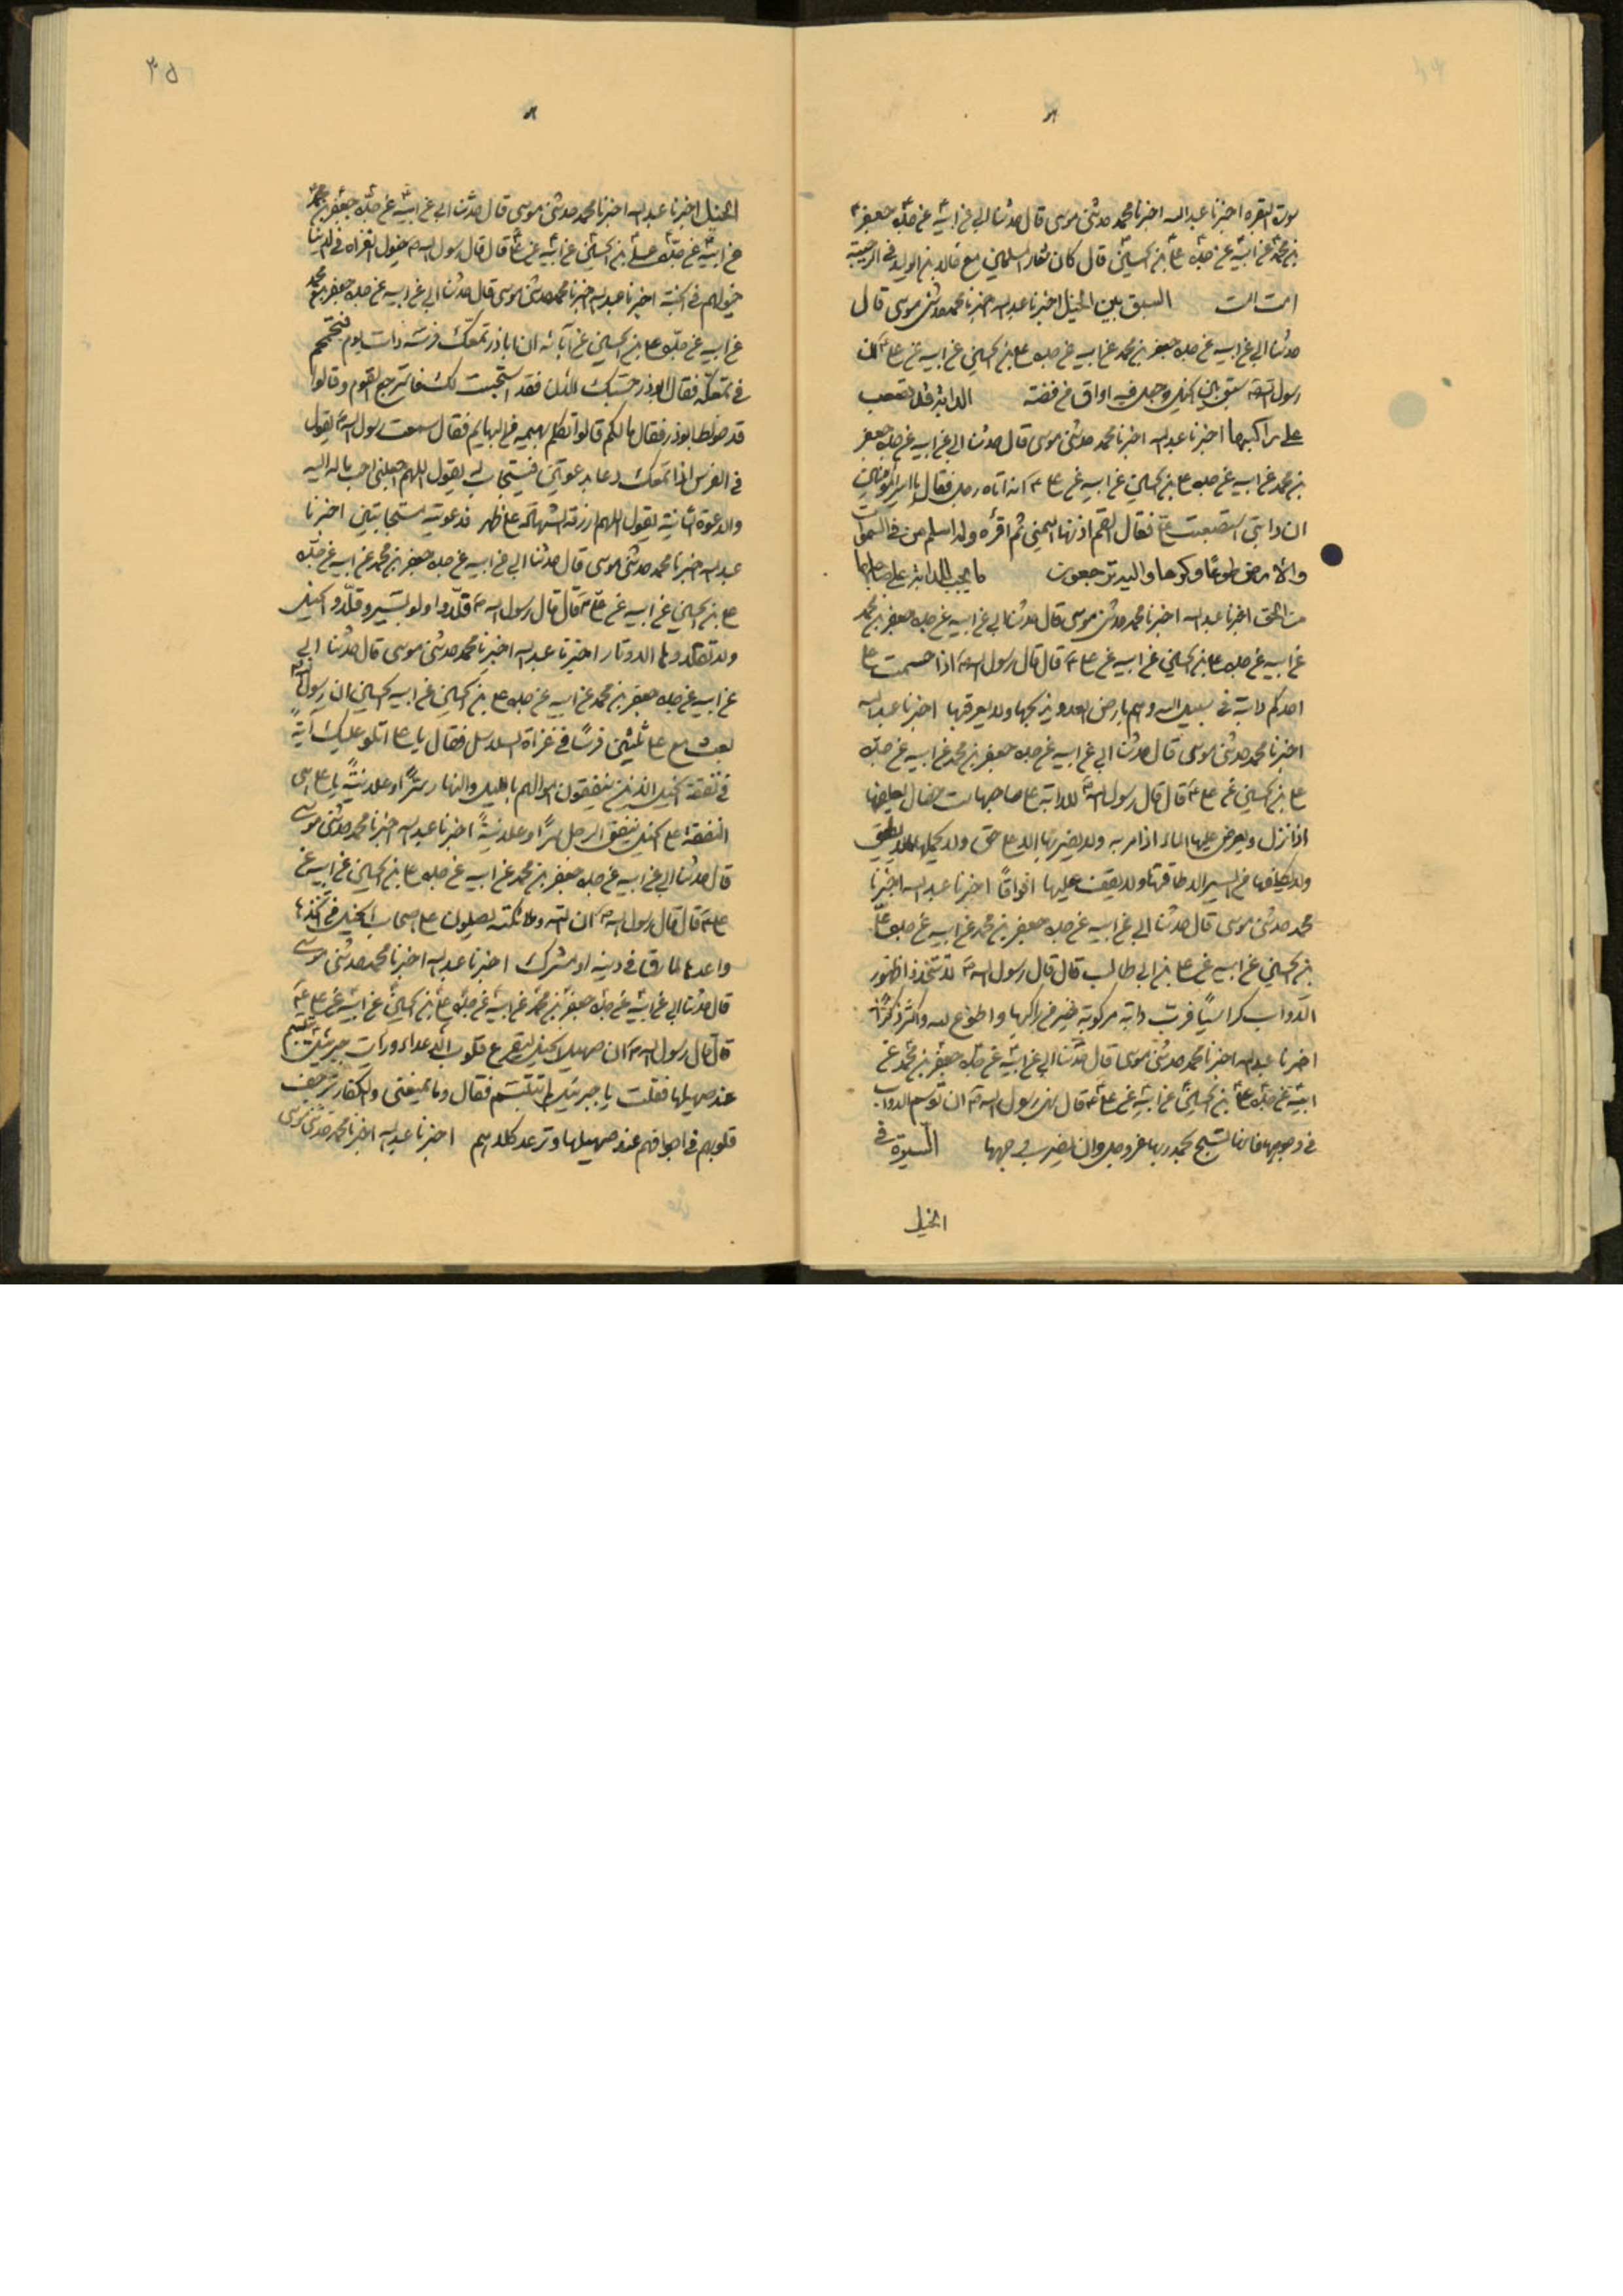 سورة البقره اخبرنا عبدالله اخبرنا محمد حدثنى موسى قال حدثنا ابي عن ابيه عن جده جعفر
بن محمد عن ابيه عن جده على بن الحسين قال كان شعار المسلمين مع خالد بن الوليد في
امت امت السبق بين الخيل اخبرنا عبدالله اخبرنا محمد حدثنى موسى قال
حدثنا ابي عن ابيه عن جده جعفر بن محمد عن ابيه عن جده على بن الحسين عن ابيه عن على ان
رسول الله سبق بين الخيل وجعل فيه اواق من فضة الدابة تصعب
على راكبها اخبرنا عبدالله اخبرنا محمد حدثنى موسى قال حدثنا ابي عن ابيه عن جده جعفر
بن محمد عن ابيه عن جده على بن الحسين عن ابيه عن على انه اتاه رجل فقال يا امير المؤمنين
ان دابتي استصعبت على فقال القم اذنها اليمنى ثم اقرأ وله اسلم من في السموات
والارض طوعا وكرها واليه ترجعون ما يجب للدابة على صاحبها
من الحق اخبرنا عبدالله اخبرنا محمد حدثنى موسى قال حدثنا ابي عن ابيه عن جده جعفر بن محمد
عن ابيه عن جده على بن الحسين عن ابيه عن على قال قال رسول الله اذا على
احدكم دابة في سبيل الله وهم بارض العدو يذبحها ولا يعرقبها اخبرنا عبدالله
اخبرنا محمد حدثنى موسى قال حدثنا ابي عن ابيه عن جده جعفر بن محمد عن ابيه عن جده
على بن الحسين عن على قال قال رسول الله للدابة على صاحبها ست خصال يعلفها
اذا نزل ويعرض عليها الماء اذا مر به ولا يضربها الا على حق ولا يحملها الا ما تطيق
ولا يكلفها من السير الا طاقتها ولا يقف عليها افواقا اخبرنا عبدالله اخبرنا
محمد حدثنى موسى قال حدثنا ابي عن ابيه عن جده جعفر بن محمد عن ابيه عن جده على
بن الحسين عن ابيه عن على بن ابي طالب قال قال رسول الله لا تتخذوا ظهور
الدواب كراسيا فرب دابة مركوبة خير من راكبها واطوع لله واكثر ذكرا
اخبرنا عبدالله اخبرنا محمد حدثنى موسى قال حدثنا ابي عن ابيه عن جده جعفر بن محمد عن
ابيه عن جده على بن الحسين عن ابيه عن على قال نهى رسول الله ان توسم الدواب
في وجوهها فانها تسبح بحمد ربها عزوجل وان يضرب في وجهها السيرة في
الخيل
٣٥
الخيل اخبرنا عبدالله اخبرنا محمد حدثنى موسى قال حدثنا ابي عن ابيه عن جده جعفر بن محمد
عن ابيه عن جده على بن الحسين عن ابيه عن على قال قال رسول الله خيول الغزاة في الدنيا
خيولهم في الجنة اخبرنا عبدالله اخبرنا محمد حدثنى موسى قال حدثنا ابي عن ابيه عن جده جعفر بن محمد
عن ابيه عن جده على بن الحسين عن آبائه ان اباذر تمعك فرسه ذات يوم فتحمحم
في تمعكه فقال ابوذر حسبك الان فقد استجيب لك فاسترجع القوم وقالوا
قد خولط ابوذر فقال مالكم قالوا تكلم بهيمة من البهايم فقال سمعت رسول الله يقول
في الفرس اذا تمعك دعا بدعوتين فيستجاب له يقول اللهم اجعلني احب ماله اليه
والدعوة الثانية يقول اللهم ارزقه الشهادة على ظهري فدعوتيه مستجابتين اخبرنا
عبدالله اخبرنا محمد حدثنى موسى قال حدثنا ابي عن ابيه عن جده جعفر بن محمد عن ابيه عن جده
على بن الحسين عن ابيه عن على قال قال رسول الله قلدوا ولو بسير وقلدوا الخيل
ولا تقلدوها الاوتار اخبرنا عبدالله اخبرنا محمد حدثنى موسى قال حدثنا ابي
عن ابيه عن جده جعفر بن محمد عن ابيه عن جده على بن الحسين عن ابيه الحسين ان رسول الله
بعث مع على ثلثين فرسا في غزاة السلاسل فقال يا على اتلو عليك آية
في نفقة الخيل الذين ينفقون اموالهم بالليل والنهار سرا وعلانية يا على هي
النفقة على الخيل ينفق الرجل سرا وعلانية اخبرنا عبدالله اخبرنا محمد حدثنى موسى
قال حدثنا ابي عن ابيه عن جده جعفر بن محمد عن ابيه عن جده على بن الحسين عن ابيه عن
على قال قال رسول الله ان الله وملائكته يصلون على اصحاب الخيل من اتخذها
واعدها لمارق في دينه او مشرك اخبرنا عبدالله اخبرنا محمد حدثنى موسى
قال حدثنا ابي عن ابيه عن جده جعفر بن محمد عن ابيه عن جده على بن الحسين عن ابيه عن على
قال قال رسول الله ان صهيل الخيل ليقرع قلوب الاعداء ورأيت جبرئيل يتبسم
عند صهيلها فقلت يا جبرئيل لم تتبسم فقال وما يمنعني والكفار ترجف
قلوبهم في اجوافهم عند صهيلها وترعد كلاهم اخبرنا عبدالله اخبرنا محمد حدثنى موسى